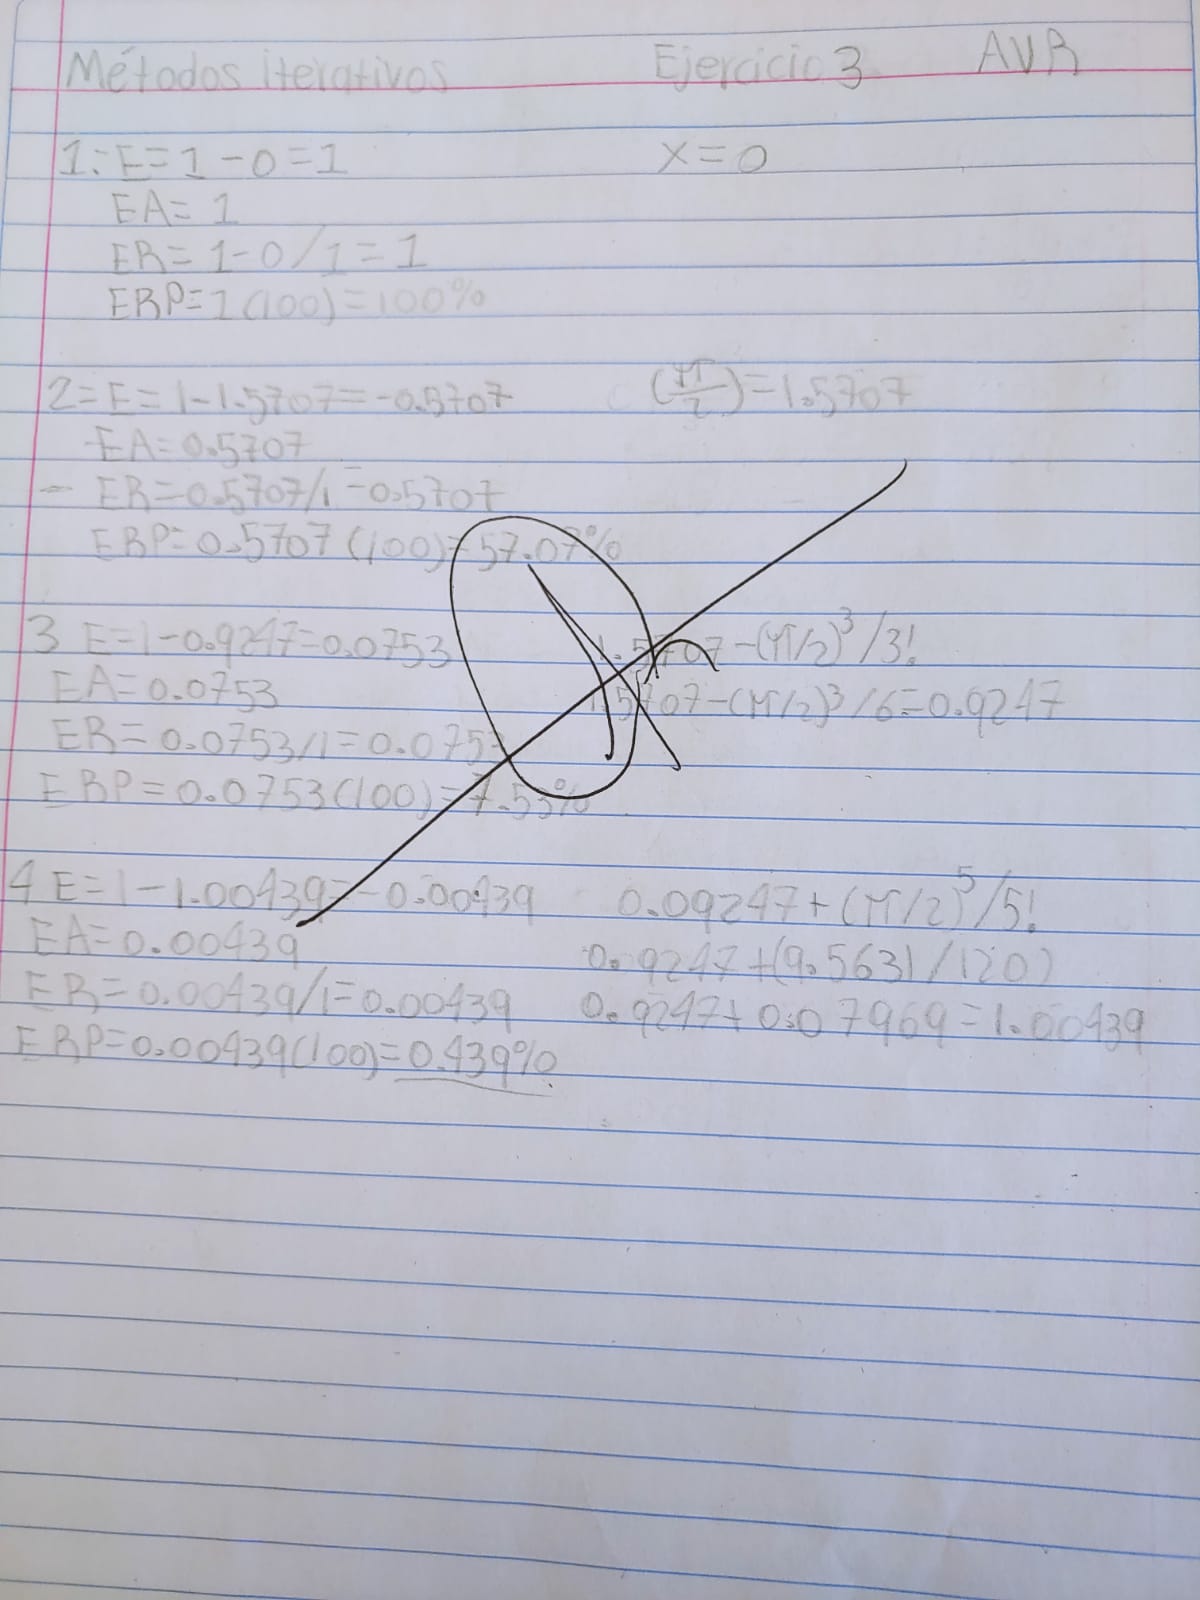 Métodos iterativos Ejercicio 3 AVR
1.- E=1-0=1 x=0
EA=1
ER=1-0/1=1
ERP=1(100)=100%
2=E=1-1.5707=-0.5707 (π/2)=1.5707
EA=0.5707
ER=0.5707/1=0.5707
ERP=0.5707(100)=57.07%
3 E=1-0.9247=0.0753 1.5707-(π/2)³/3!
EA=0.0753 1.5707-(π/2)³/6=0.9247
ER=0.0753/1=0.0753
ERP=0.0753(100)=7.53%
4 E=1-1.00439=-0.00439 0.09247+(π/2)⁵/5!
EA=0.00439 0.9247+(9.5631/120)
ER=0.00439/1=0.00439 0.9247+0.07969=1.00439
ERP=0.00439(100)=0.439%